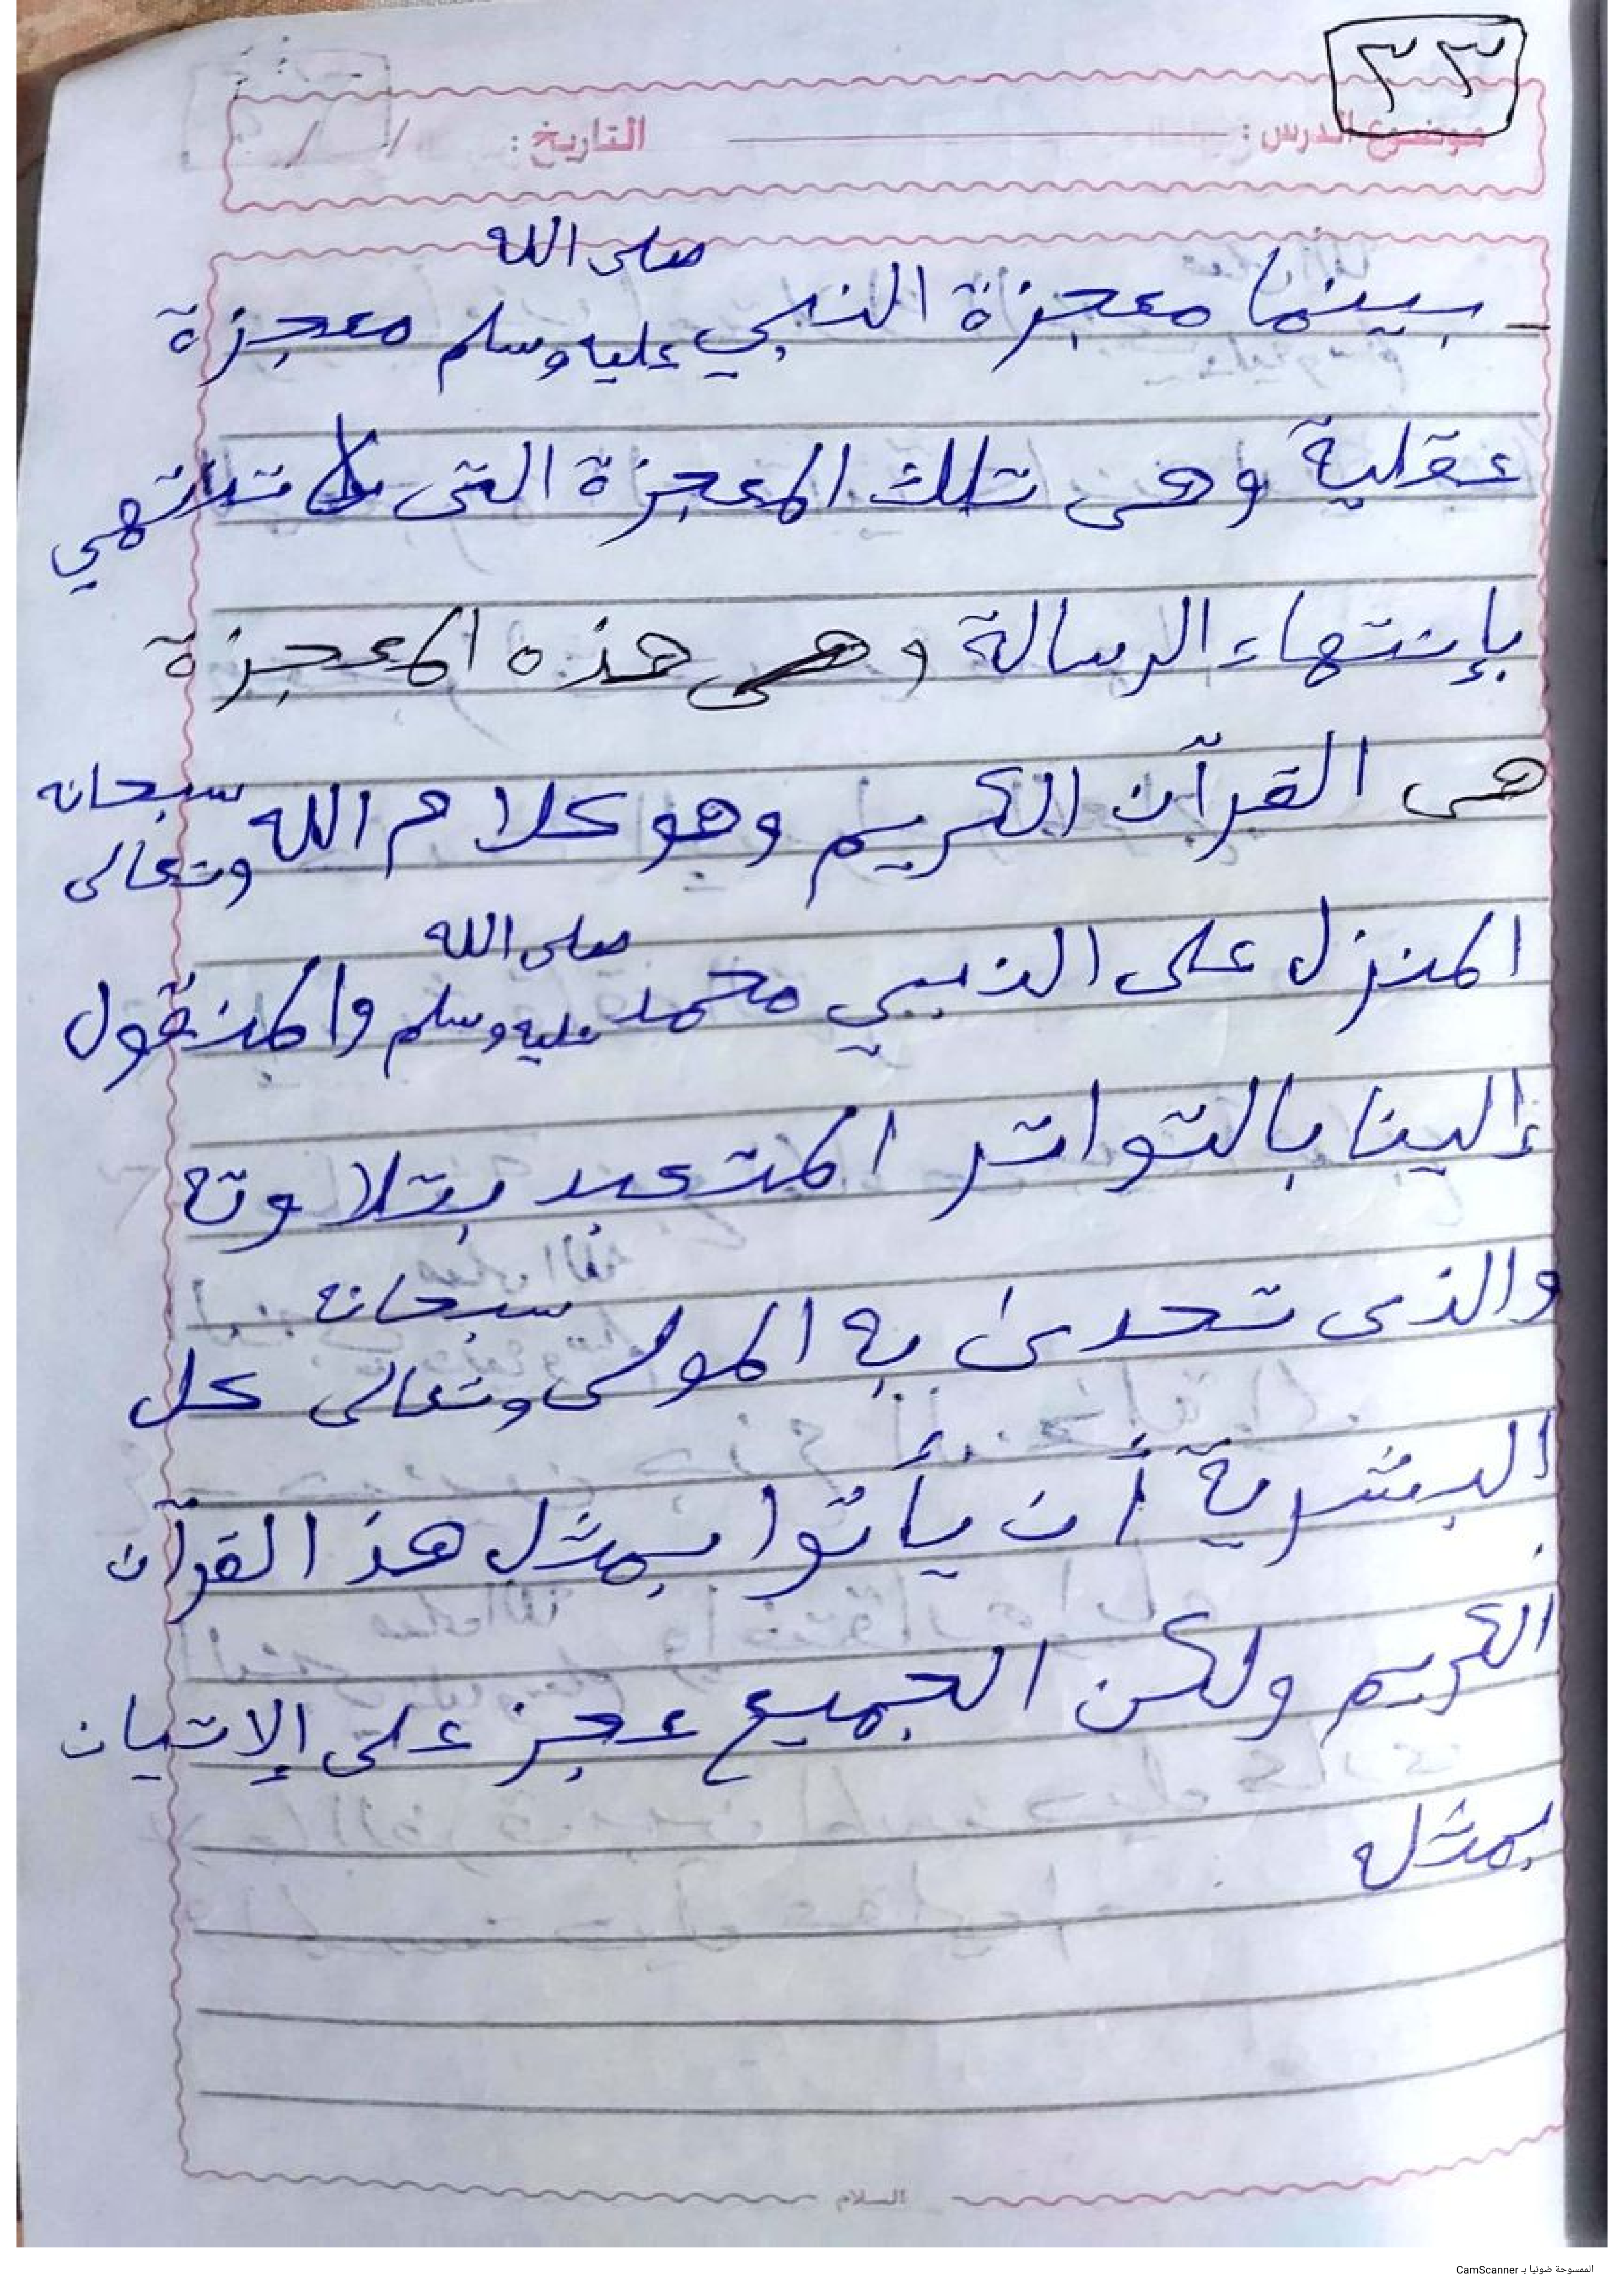 ٣٣
موضوع الدرس : التاريخ : / /
- بينما معجزة النبي صلى الله عليه وسلم معجزة
عقلية وهى تلك المعجزة التى لا تنتهي
بإنتهاء الرسالة وهى هذه المعجزة
هى القرآن الكريم وهو كلام الله سبحانه وتعالى
المنزل على النبي محمد صلى الله عليه وسلم والمنقول
إلينا بالتواتر المتعبد بتلاوته
والذى تحدى به المولى سبحانه وتعالى كل
البشرية أن يأتوا بمثل هذ القرآن
الكريم ولكن الجميع عجز على الإتيان
بمثله
السلام
الممسوحة ضوئيا بـ CamScanner